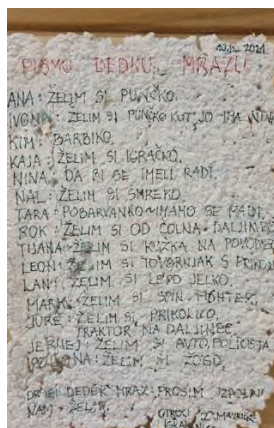 2021
PISMO DEDKU MRAZU
ANA: ŽELIM SI PUNČKO.
IVONA: ŽELIM SI PUNČKO KOT JO IMA
KIM: BARBIKO.
KAJA: ŽELIM SI IGRAČKO.
NINA: DA BI SE IMELI RADI.
NAL: ŽELIM SI SMREKO.
TARA: POBARVANKO IMAMO SE RADI.
ROK: ŽELIM SI OD ČOLNA DALJINEC
TIJANA: ŽELIM SI KUŽKA NA
LEON: ŽELIM SI TOVORNJAK S
LAN: ŽELIM SI LEPO JELKO.
MARK: ŽELIM SI SPIN FIGHTER.
JURE: ŽELIM SI PRIKOLICO,
TRAKTOR NA DALJINEC.
JERNEJ: ŽELIM SI AVTO POLICISTA
ŽELIM SI ŽOGO.
DRAGI DEDEK MRAZ PROSIM IZPOLNI
NAM ŽELJE.
OTROCI